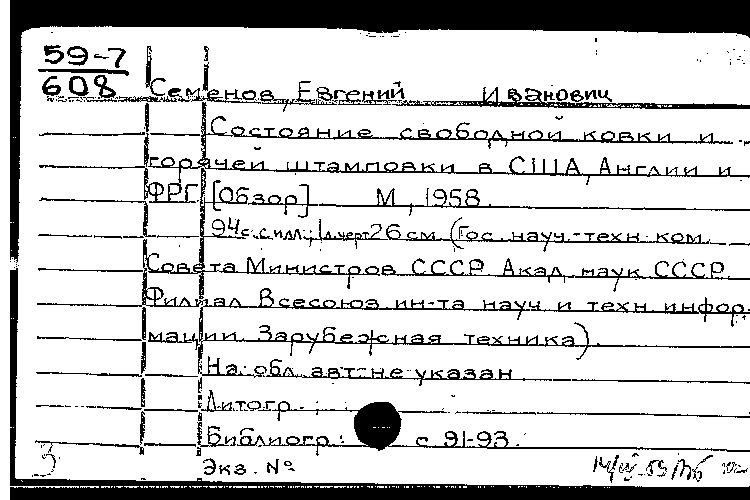 59-7
608
Семенов, Евгений Иванович
Состояние свободной ковки и
горячей штамповки в США, Англии и
ФРГ [Обзор] М, 1958.
94с. с илл.; 1л. черт 26 см. (Гос. науч.-техн. ком.
Совета Министров СССР. Акад. наук СССР.
Филиал Всесоюз. ин-та науч. и техн. инфор-
мации. Зарубежная техника).
На обл. авт. не указан
Литогр.
Библиогр.: с. 91-93.
3
Экз. №